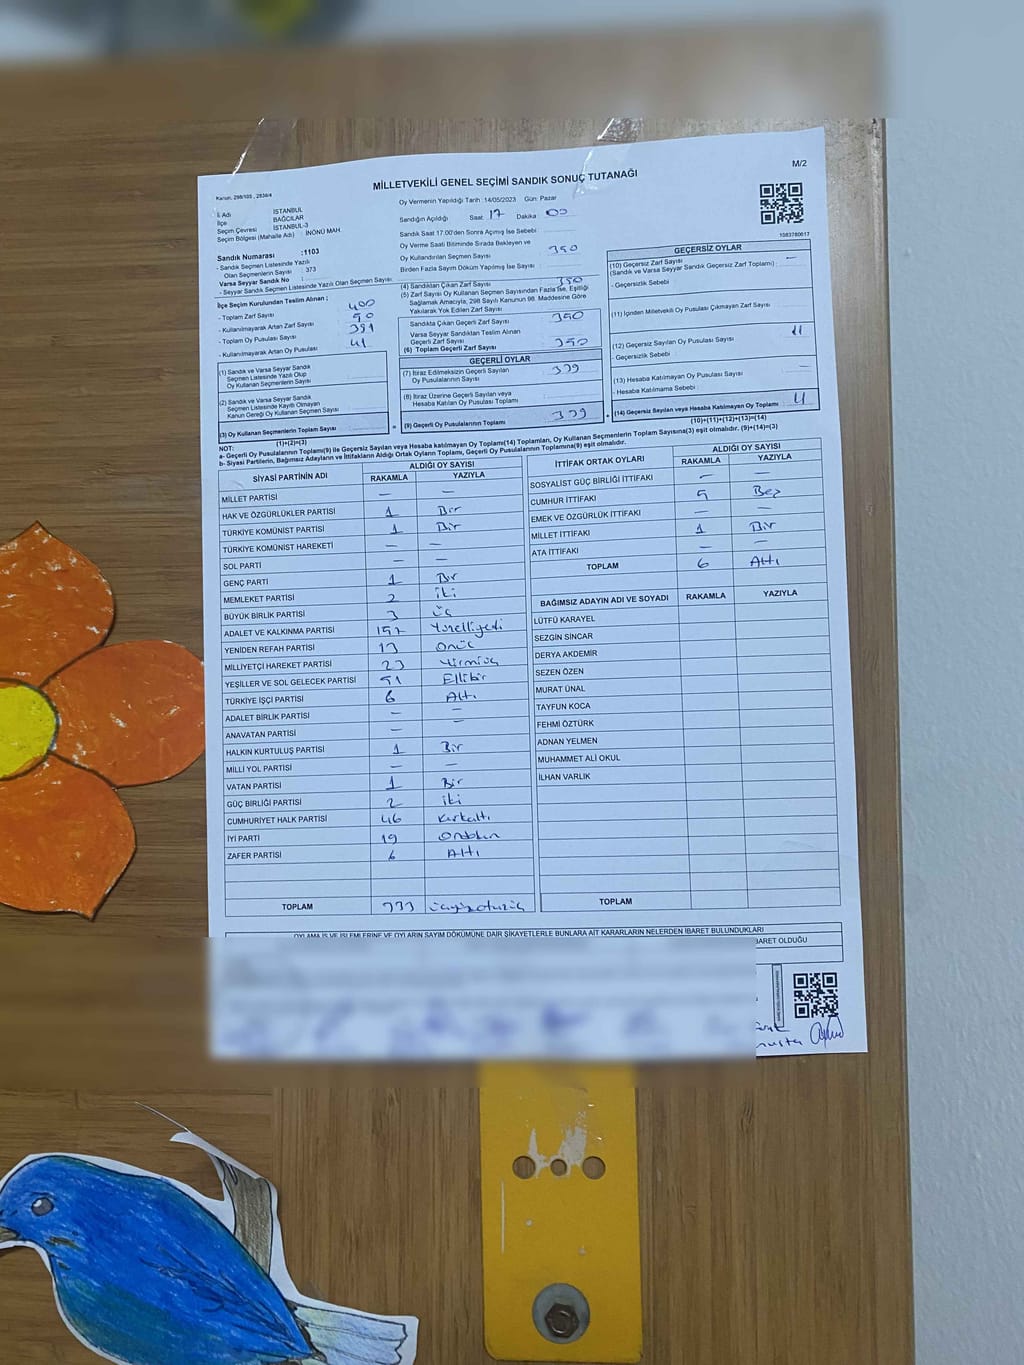 M/2
Kanun: 298/105 , 2839/4
MİLLETVEKİLİ GENEL SEÇİMİ SANDIK SONUÇ TUTANAĞI
İl Adı : İSTANBUL
İlçe : BAĞCILAR
Seçim Çevresi : İSTANBUL-3
Seçim Bölgesi (Mahalle Adı) : İNÖNÜ MAH.
Sandık Numarası :1103
- Sandık Seçmen Listesinde Yazılı
Olan Seçmenlerin Sayısı : 373
Varsa Seyyar Sandık No :
- Seyyar Seçmen Listesinde Yazılı Olan Seçmen Sayısı
İlçe Seçim Kurulundan Teslim Alınan ;
- Toplam Zarf Sayısı 400
- Kullanılmayarak Artan Zarf Sayısı 50
- Toplam Oy Pusulası Sayısı 391
- Kullanılmayarak Artan Oy Pusulası 41
(1) Sandık ve Varsa Seyyar Sandık
Seçmen Listesinde Yazılı Olup
Oy Kullanan Seçmenlerin Sayısı
(2) Sandık ve Varsa Seyyar Sandık
Seçmen Listesinde Kayıtlı Olmayan
Kanun Gereği Oy Kullanan Seçmen Sayısı
(3) Oy Kullanan Seçmenlerin Toplam Sayısı
(1)+(2)=(3)
Oy Vermenin Yapıldığı Tarih :14/05/2023 Gün: Pazar
Sandığın Açıldığı Saat 17 Dakika 00
Sandık Saat 17.00'den Sonra Açılmış İse Sebebi
Oy Verme Saati Bitiminde Sırada Bekleyen ve
Oy Kullandırılan Seçmen Sayısı 350
Birden Fazla Sayım Döküm Yapılmış İse Sayısı
(4) Sandıktan Çıkan Zarf Sayısı 350
(5) Zarf Sayısı Oy Kullanan Seçmen Sayısından Fazla İse, Eşitliği
Sağlamak Amacıyla, 298 Sayılı Kanunun 98. Maddesine Göre
Yakılarak Yok Edilen Zarf Sayısı
Sandıkta Çıkan Geçerli Zarf Sayısı 350
Varsa Seyyar Sandıktan Teslim Alınan
Geçerli Zarf Sayısı
(6) Toplam Geçerli Zarf Sayısı 350
GEÇERLİ OYLAR
(7) İtiraz Edilmeksizin Geçerli Sayılan
Oy Pusulalarının Sayısı 339
(8) İtiraz Üzerine Geçerli Sayılan veya
Hesaba Katılan Oy Pusulası Toplamı
(9) Geçerli Oy Pusulalarının Toplamı 339
1083780617
GEÇERSİZ OYLAR
(10) Geçersiz Zarf Sayısı
(Sandık ve Varsa Seyyar Sandık Geçersiz Zarf Toplamı) : —
- Geçersizlik Sebebi
(11) İçinden Milletvekili Oy Pusulası Çıkmayan Zarf Sayısı
(12) Geçersiz Sayılan Oy Pusulası Sayısı 11
- Geçersizlik Sebebi
(13) Hesaba Katılmayan Oy Pusulası Sayısı —
- Hesaba Katılmama Sebebi
(14) Geçersiz Sayılan veya Hesaba Katılmayan Oy Toplamı 11
(10)+(11)+(12)+(13)=(14)
NOT:
a- Geçerli Oy Pusulalarının Toplamı(9) ile Geçersiz Sayılan veya Hesaba katılmayan Oy Toplamı(14) Toplamları, Oy Kullanan Seçmenlerin Toplam Sayısına(3) eşit olmalıdır. (9)+(14)=(3)
b- Siyasi Partilerin, Bağımsız Adayların ve İttifakların Aldığı Ortak Oyların Toplamı, Geçerli Oy Pusulalarının Toplamına(9) eşit olmalıdır.
SİYASİ PARTİNİN ADI ALDIĞI OY SAYISI
RAKAMLA YAZIYLA
MİLLET PARTİSİ — —
HAK VE ÖZGÜRLÜKLER PARTİSİ 1 Bir
TÜRKİYE KOMÜNİST PARTİSİ 1 Bir
TÜRKİYE KOMÜNİST HAREKETİ — —
SOL PARTİ — —
GENÇ PARTİ 1 Bir
MEMLEKET PARTİSİ 2 iki
BÜYÜK BİRLİK PARTİSİ 3 üç
ADALET VE KALKINMA PARTİSİ 157 Yüzelliyedi
YENİDEN REFAH PARTİSİ 13 Onüç
MİLLİYETÇİ HAREKET PARTİSİ 23 Yirmiüç
YEŞİLLER VE SOL GELECEK PARTİSİ 51 Ellibir
TÜRKİYE İŞÇİ PARTİSİ 6 Altı
ADALET BİRLİK PARTİSİ — —
ANAVATAN PARTİSİ — —
HALKIN KURTULUŞ PARTİSİ 1 Bir
MİLLİ YOL PARTİSİ — —
VATAN PARTİSİ 1 Bir
GÜÇ BİRLİĞİ PARTİSİ 2 iki
CUMHURİYET HALK PARTİSİ 46 Kırkaltı
İYİ PARTİ 19 Ondokuz
ZAFER PARTİSİ 6 Altı
TOPLAM 333 üçyüzotuzüç
İTTİFAK ORTAK OYLARI ALDIĞI OY SAYISI
RAKAMLA YAZIYLA
SOSYALİST GÜÇ BİRLİĞİ İTTİFAKI — —
CUMHUR İTTİFAKI 5 Beş
EMEK VE ÖZGÜRLÜK İTTİFAKI — —
MİLLET İTTİFAKI 1 Bir
ATA İTTİFAKI — —
TOPLAM 6 Altı
BAĞIMSIZ ADAYIN ADI VE SOYADI RAKAMLA YAZIYLA
LÜTFÜ KARAYEL
SEZGİN SİNCAR
DERYA AKDEMİR
SEZEN ÖZEN
MURAT ÜNAL
TAYFUN KOCA
FEHMİ ÖZTÜRK
ADNAN YELMEN
MUHAMMET ALİ OKUL
İLHAN VARLIK
TOPLAM
OYLAMA İŞ VE İŞLEMLERİNE VE OYLARIN SAYIM DÖKÜMÜNE DAİR ŞİKAYETLERLE BUNLARA AİT KARARLARIN NELERDEN İBARET BULUNDUKLARI
BARET OLDUĞU